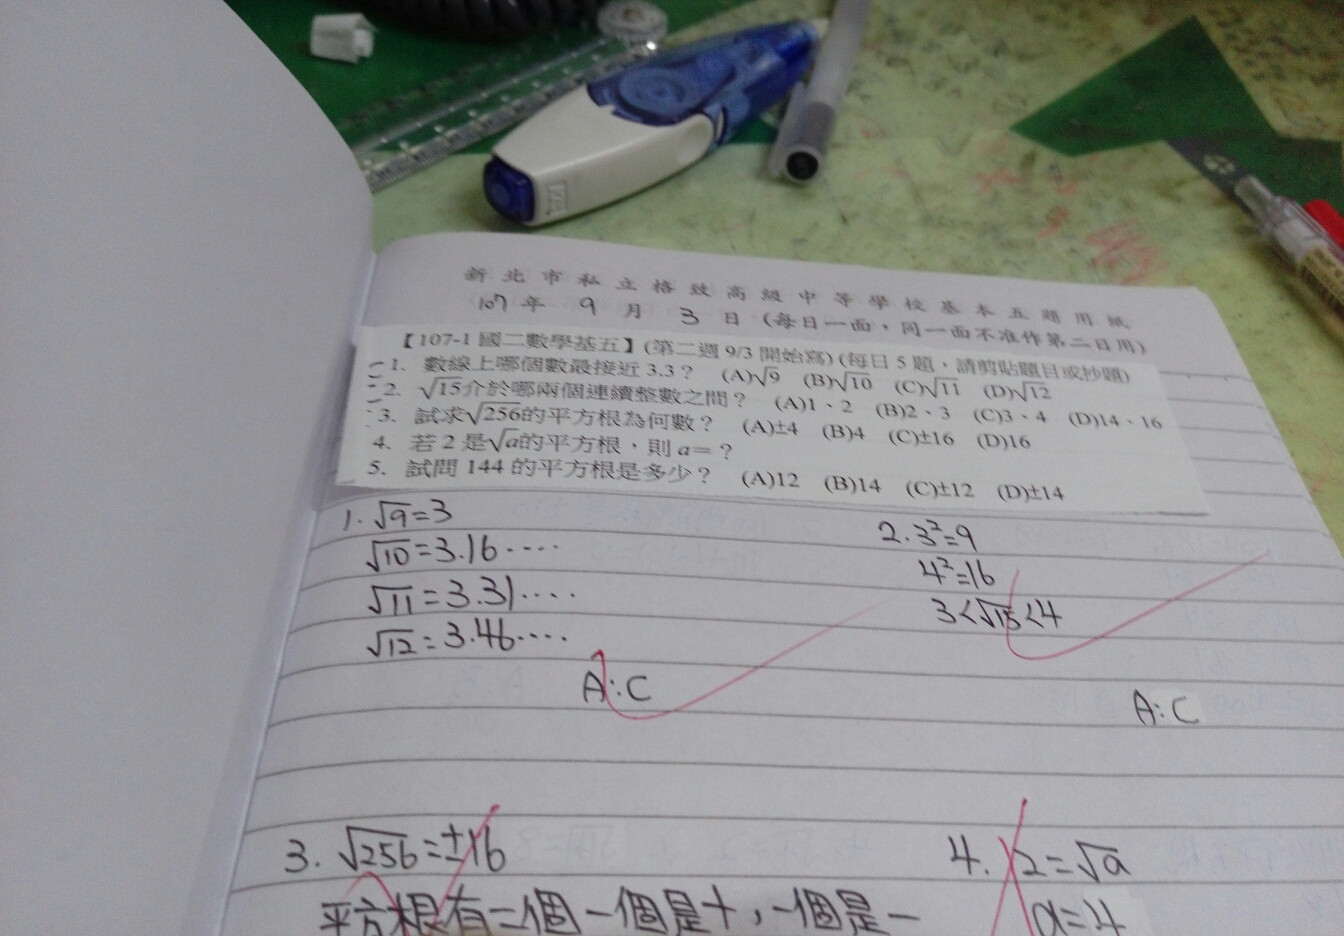 新北市私立格致高級中等學校基本五題用紙
107年 9月 3日 (每日一面，同一面不准作第二日用)
【107-1 國二數學基五】(第二週 9/3 開始寫) (每日 5 題，請剪貼題目或抄題)
1. 數線上哪個數最接近 3.3？ (A)√9 (B)√10 (C)√11 (D)√12
2. √15介於哪兩個連續整數之間？ (A)1、2 (B)2、3 (C)3、4 (D)14、16
3. 試求√256的平方根為何數？ (A)±4 (B)4 (C)±16 (D)16
4. 若 2 是√a的平方根，則 a=？
5. 試問 144 的平方根是多少？ (A)12 (B)14 (C)±12 (D)±14
1. √9=3
√10=3.16····
√11=3.31····
√12=3.46····
A:C
2. 3²=9
4²=16
3<√15<4
A:C
3. √256=±16
平方根有二個一個是+，一個是－
4. 2=√a
a=4